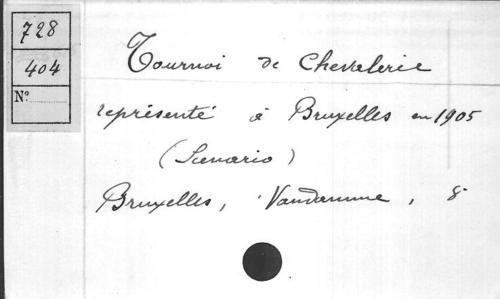 728
404
N°
Tournoi de Chevalerie
représenté à Bruxelles en 1905
(Scenario)
Bruxelles, Vandamme, 8°